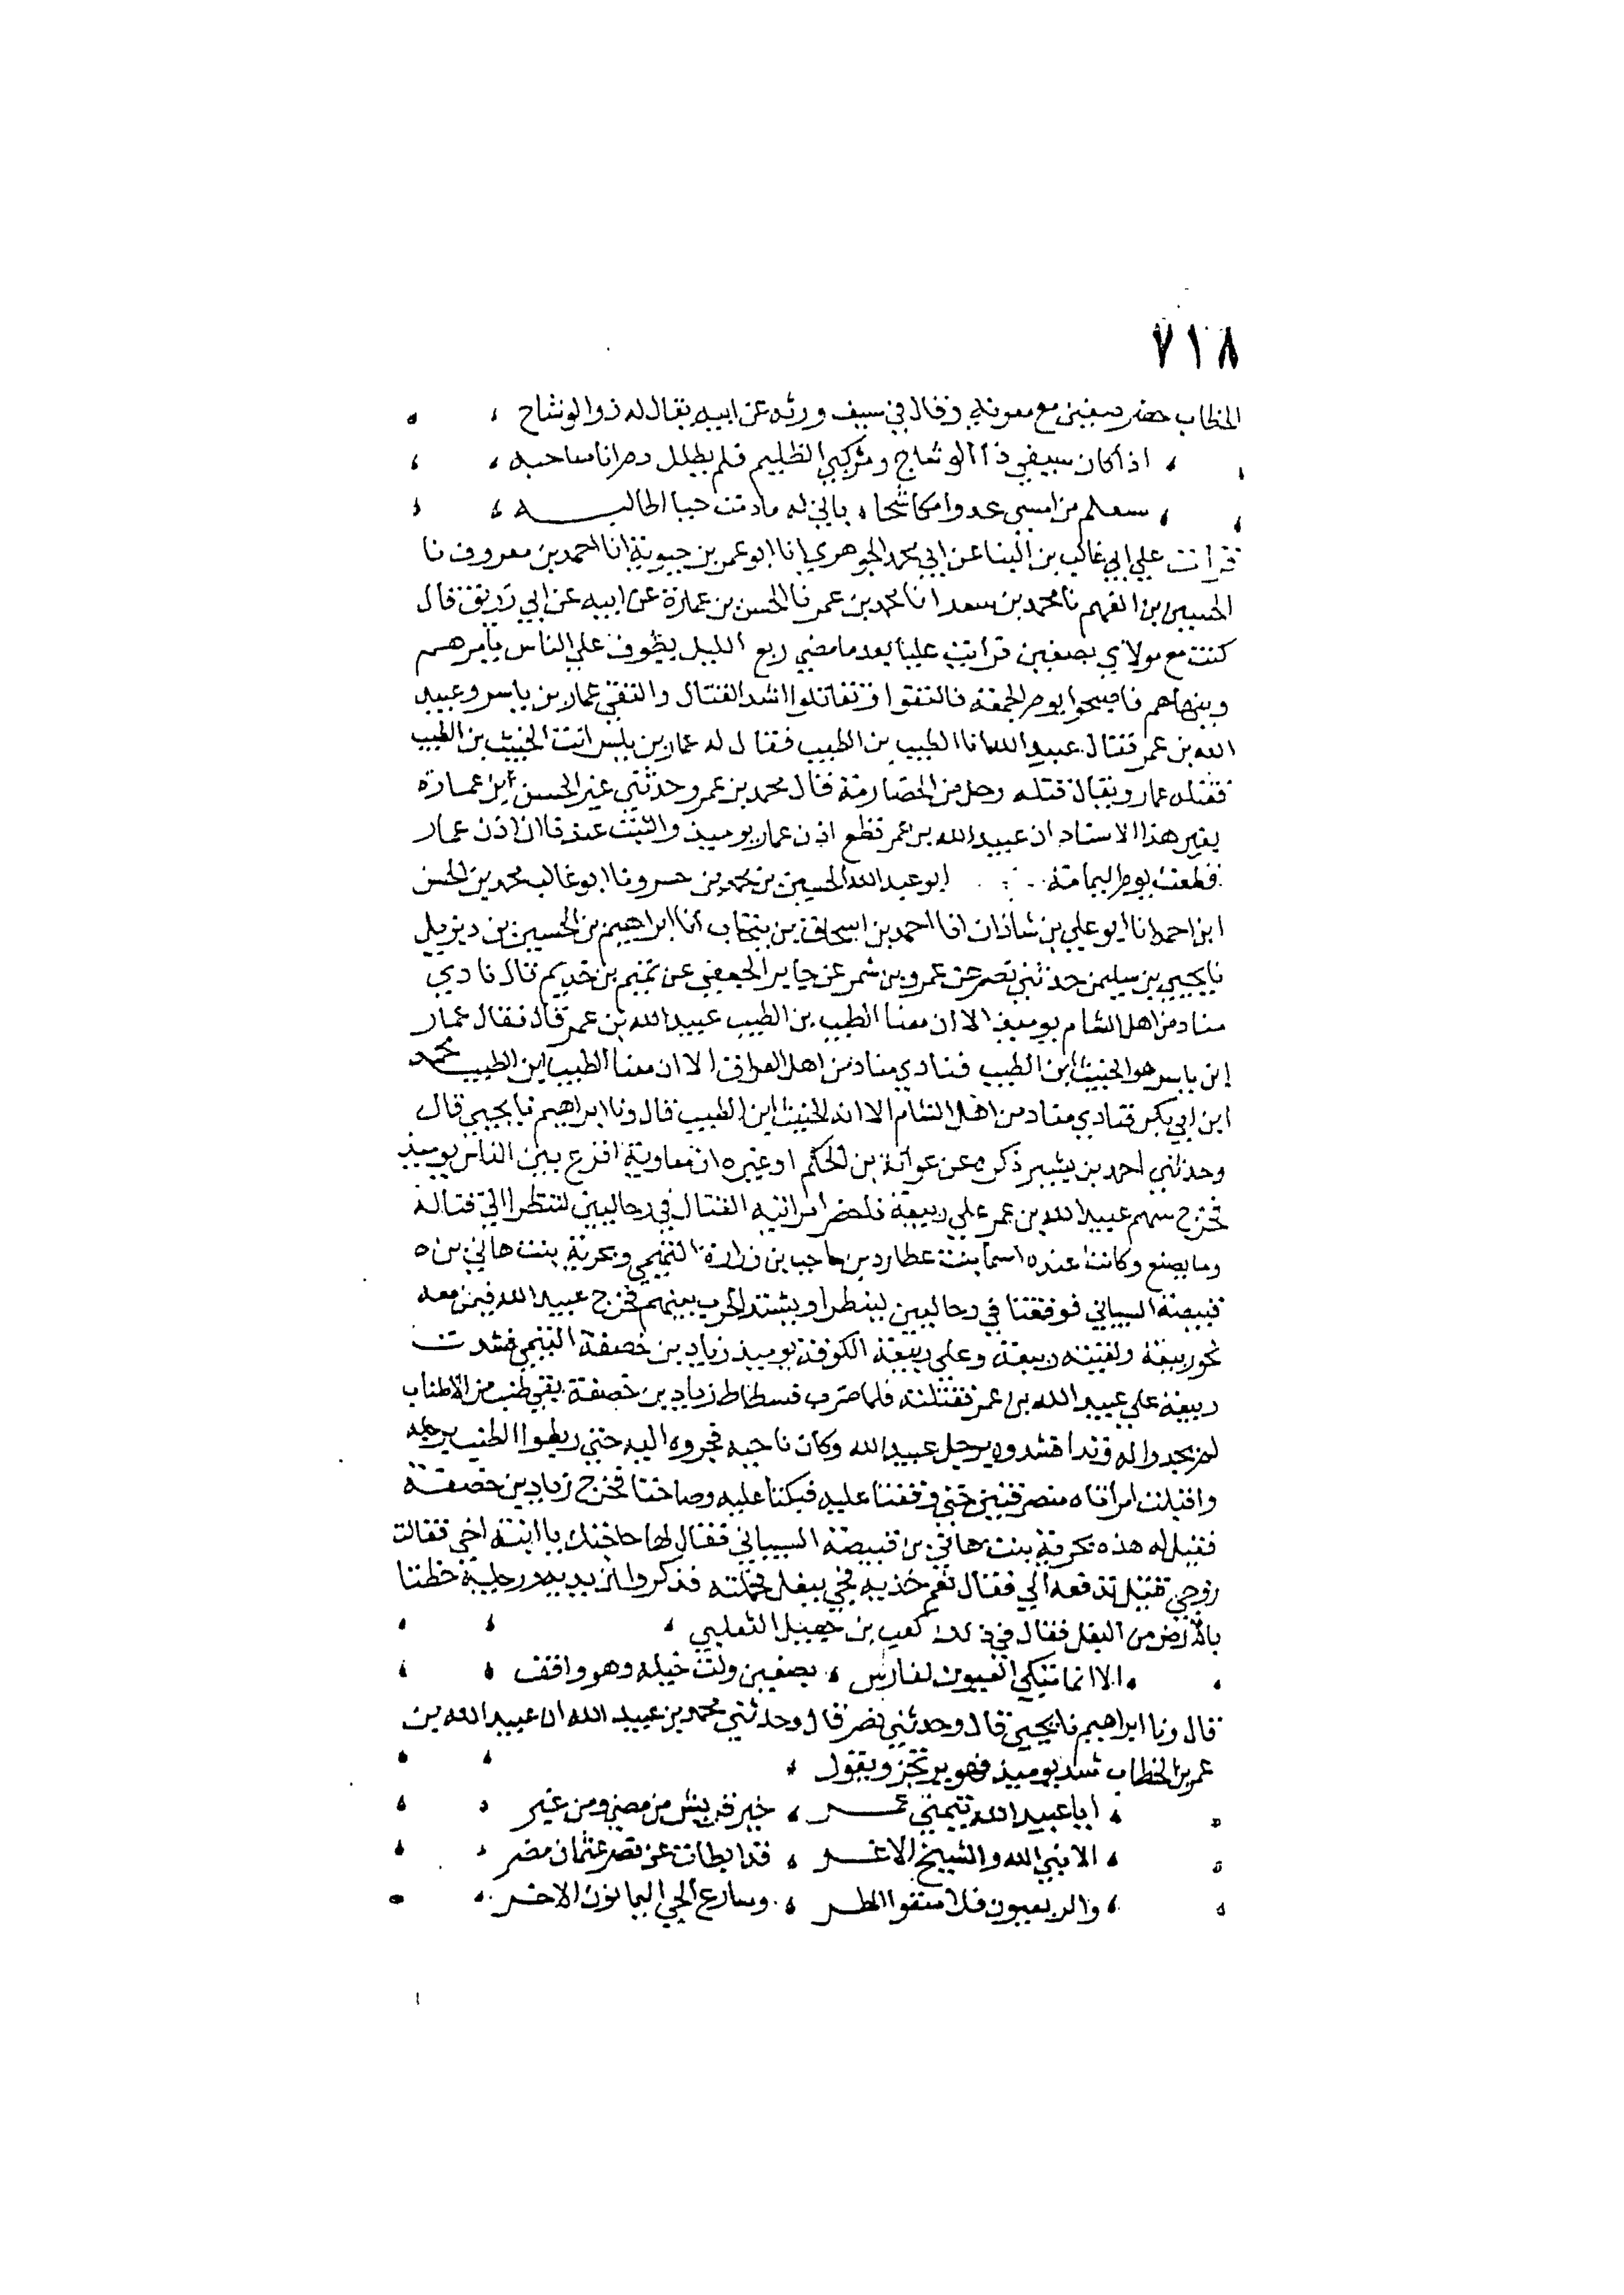 ٧١٨
الخطاب حضر صفين مع معوية وقال في سيف ورثه عن ابيه يقال له ذو الوشاح
اذا كان سيفي ذا الوشاح ومركبي الظليم فلم يطلل دم انا صاحبه
سيعلم من امسى عدوا مكاشحا باني له ما دمت حيا اطالبـــه
قرات علي ابي غالب بن البنا عن ابي محمد الجوهري انا ابو عمر بن حيوية انا احمد بن معروف نا
الحسين بن الفهم نا محمد بن سعد انا محمد بن عمر نا الحسن بن عمارة عن ابيه عن ابي زريق قال
كنت مع مولاي بصفين فرايت عليا بعد ما مضي ربع الليل يطوف علي الناس يامرهـــم
وينهاهم فاصبحوا يوم الجمعة فالتقوا وتقاتلوا اشد القتال والتقي عمار بن ياسر وعبيد
الله بن عمر فقال عبيد الله انا الطيب بن الطيب فقال له عمار بن ياسر انت الخبيث بن الطيب
فقتله عمار ويقال قتله رجل من الحضارمة قال محمد بن عمر وحدثني غير الحسن ابن عمارة
بغير هذا الاسناد ان عبيد الله بن عمر قطع اذن عمار يوميذ والثبت عندنا ان اذن عمار
قطعت يوم اليمامة ابو عبد الله الحسين بن محمد بن خسرو نا ابو غالب محمد بن الحسن
ابن احمد انا ابو علي بن شاذان انا احمد بن اسحاق بن ينخاب انا ابراهيم بن الحسين بن ديزيل
نا يحيي بن سليمن حدثني نصر عن عمرو بن شمر عن جابر الجعفي عن تميم بن حذيم قال نادي
مناد من اهل الشام يوميذ الا ان معنا الطيب بن الطيب عبيد الله بن عمر قال فقال عمار
ابن ياسر هو الخبيث ابن الطيب فنادي مناد من اهل العراق الا ان معنا الطيب ابن الطيب محمد
ابن ابي بكر فنادي مناد من اهل الشام الا انه الخبيث ابن الطيب قال ونا ابراهيم نا يحيي قال
وحدثني احمد بن بشير ذكره عن عوانة بن الحكم او غيره ان معاوية اقرع بين الناس يوميذ
فخرج سهم عبيد الله بن عمر علي ربيعة فاحضر امراتيه القتال في رحاليين لتنظرا الي قتاله
وما يصنع وكانت عنده اسما بنت عطارد بن حاجب بن زرارة التميمي وبحرية بنت هاني بن ه
قبيصة السيباني فوقفتا في رحاليين لينظرا ويشتد الحرب بينهم فخرج عبيد الله فيمن معه
نحو ربيعة ولقيته ربيعة وعلي ربيعة الكوفة يوميذ زياد بن خصفة التيمي فشدت
ربيعة علي عبيد الله بن عمر فقتلته فلما ضرب فسطاط زياد بن خصفة بقي طنب من الاطناب
لم يجدوا له وتدا فشدوه برجل عبيد الله وكان ناحيه فجروه اليه حتي ربطوا الطنب برجله
واقبلت امراتاه منصرفتين حتي وقفتا عليه فبكتا عليه وصاحتا فخرج زياد بن خصفـــة
فقيل له هذه بحرية بنت هاني بن قبيصة السيباني فقال لها حاجتك يا ابنة اخي فقالت
زوجي قتيل تدفعه الي فقال نعم خذيه فجي ببغل فحملته فذكروا ان يديه ورجليه خطتا
بالارض من البغل فقال في ذلك كعب بن جعيل الثعلبي
الا انما تبكي العيون لفارس بصفين ولت خيله وهو واقف
قال ونا ابراهيم نا يحيي قال وحدثني نصر قال وحدثني محمد بن عبيد الله ان عبيد الله بن
عمر بن الخطاب شد يوميذ فهو يرتجز ويقول
انا عبيد الله يتمني عمـــر خير قريش من مضي ومن غبر
الا نبي الله والشيخ الاغـــر قد ابطات عن نصر عثمان مضر
والربعيون فلا سقوا المطـــر وسارع الحي اليمانون الاخـر